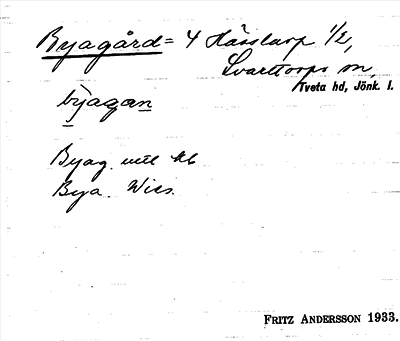 Byagård = 4 Hässtarp 1/2,
Svarttorps sn,
Tveta hd, Jönk. l.
byagan
Byag. utt kb
Bya. Wies.
FRITZ ANDERSSON 1933.